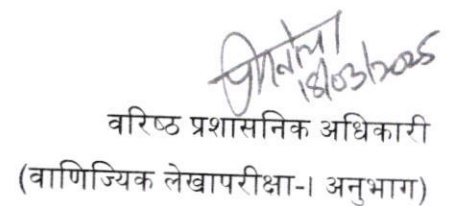 18/03/2025
वरिष्ठ प्रशासनिक अधिकारी
(वाणिज्यिक लेखापरीक्षा-। अनुभाग)